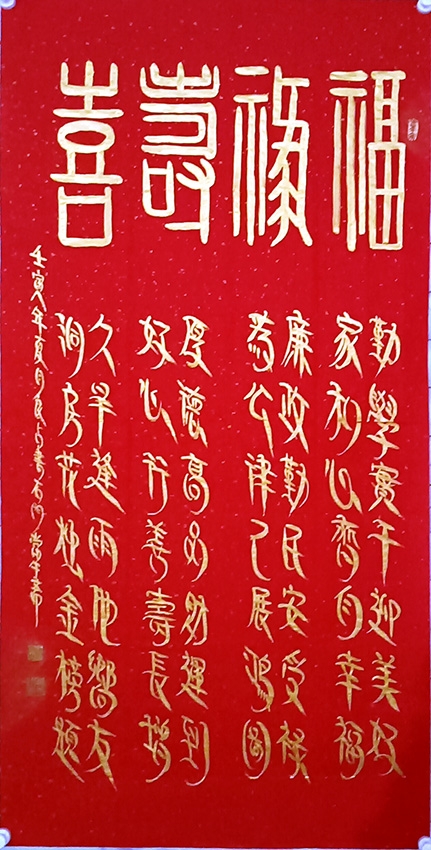 福祿壽喜
勤學實干迎美好
家和心齊自幸福
廉政勤民安受祿
為公律己展鴻圖
厚德高 財運到
好心行善壽長增
久旱逢雨他鄉友
洞房花烛金榜題
壬寅年夏月